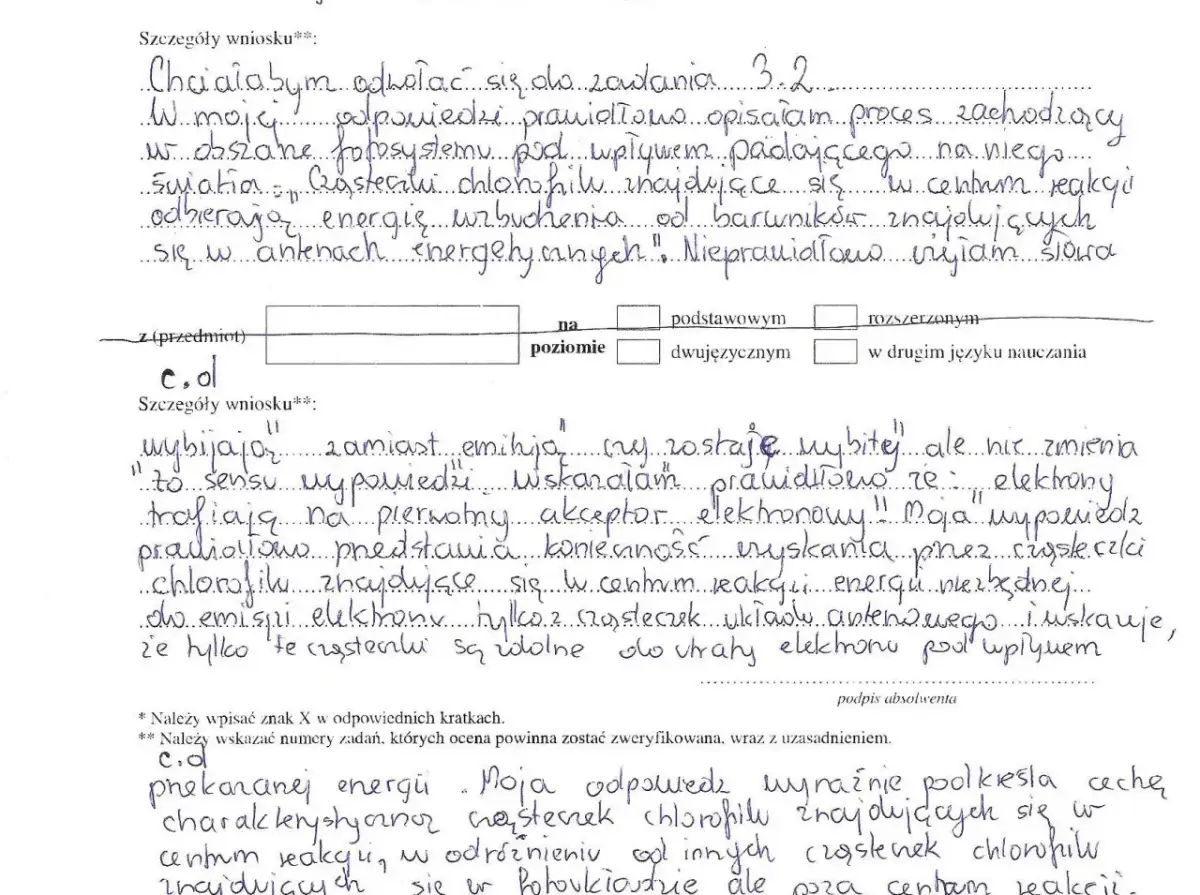 Szczegóły wniosku**:
Chciałabym odwołać się do zadania 3.2
W mojej odpowiedzi prawidłowo opisałam proces zachodzący
w obszarze fotosystemu pod wpływem padającego na niego
światła: "Cząsteczki chlorofilu znajdujące się w centrum reakcji
odbierają energię wzbudzenia od barwników znajdujących
się w antenach energetycznych". Nieprawidłowo użyłam słowa
z (przedmiot) na poziomie podstawowym rozszerzonym
dwujęzycznym w drugim języku nauczania
c.d
Szczegóły wniosku**:
wybijają" zamiast emitują" czy zostaję wybitej" ale nie zmienia
"to sensu wypowiedzi. Wskazałam prawidłowo że: elektrony
trafiają na pierwotny akceptor elektronowy". Moja wypowiedz
prawidłowo przedstawia konieczność uzyskania przez cząsteczki
chlorofilu znajdujące się w centrum reakcji energii niezbędnej
do emisji elektronu tylko z cząsteczek układu antenowego i wskazuje,
że tylko te cząsteczki są zdolne do utraty elektronu pod wpływem
podpis absolwenta
* Należy wpisać znak X w odpowiednich kratkach.
** Należy wskazać numery zadań, których ocena powinna zostać zweryfikowana, wraz z uzasadnieniem.
c.d
przekazanej energii. Moja odpowiedz wyraźnie podkreśla cechę
charakterystyczną cząsteczek chlorofilu znajdujących się w
centrum reakcji, w odróżnieniu od innych cząsteczek chlorofilu
znajdujących się w fotoukładzie ale poza centrum reakcji.